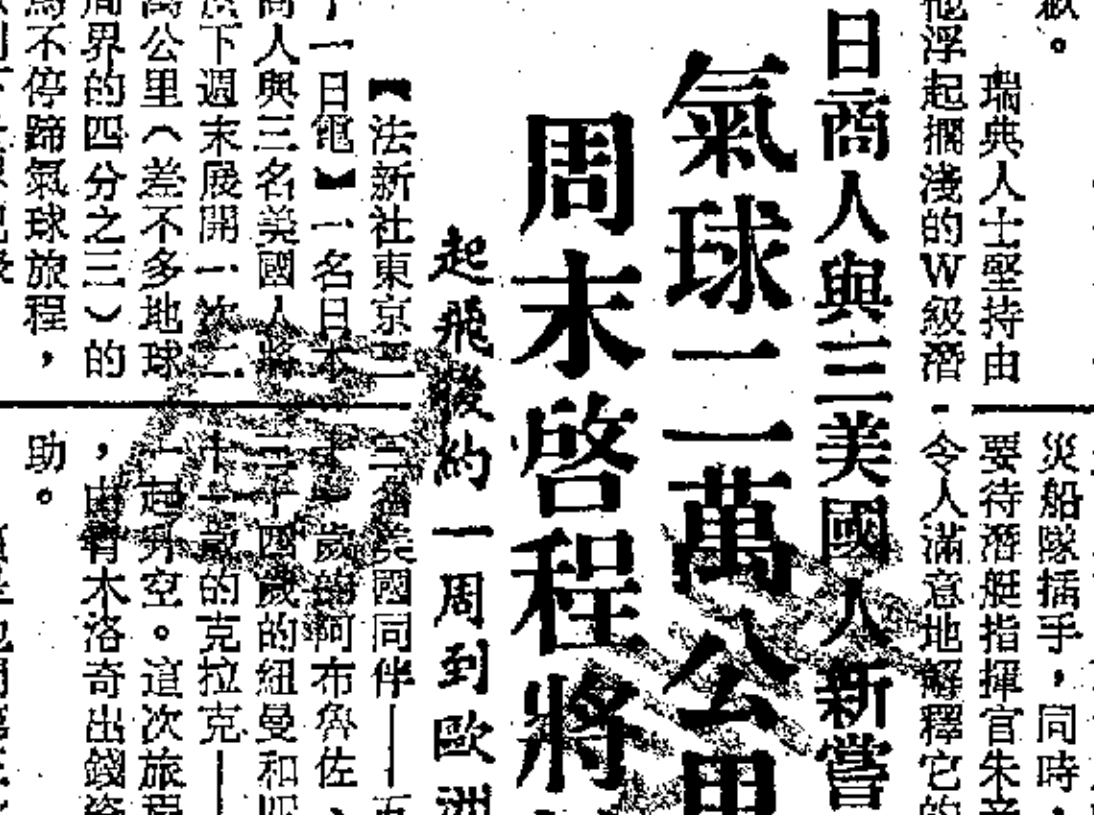 歉。
瑞典人士堅持由
他浮起擱淺的W級潛
災船隊插手，同時，
要待潛艇指揮官朱
令人滿意地解釋它的
日商人與三美國人新嘗
氣球二萬公里
周末啓程將
起飛後約一周到歐洲
【法新社東京三
十一日電】一名日本
商人與三名美國人將
於下週末展開一次二
萬公里（差不多地球
周界的四分之三）的
馬不停蹄氣球旅程，
三名美國同伴——五
十一歲的阿布魯佐、
三十四歲的紐曼和
十一歲的克拉克——
一起升空。這次旅程
，由青木洛奇出錢資
助。